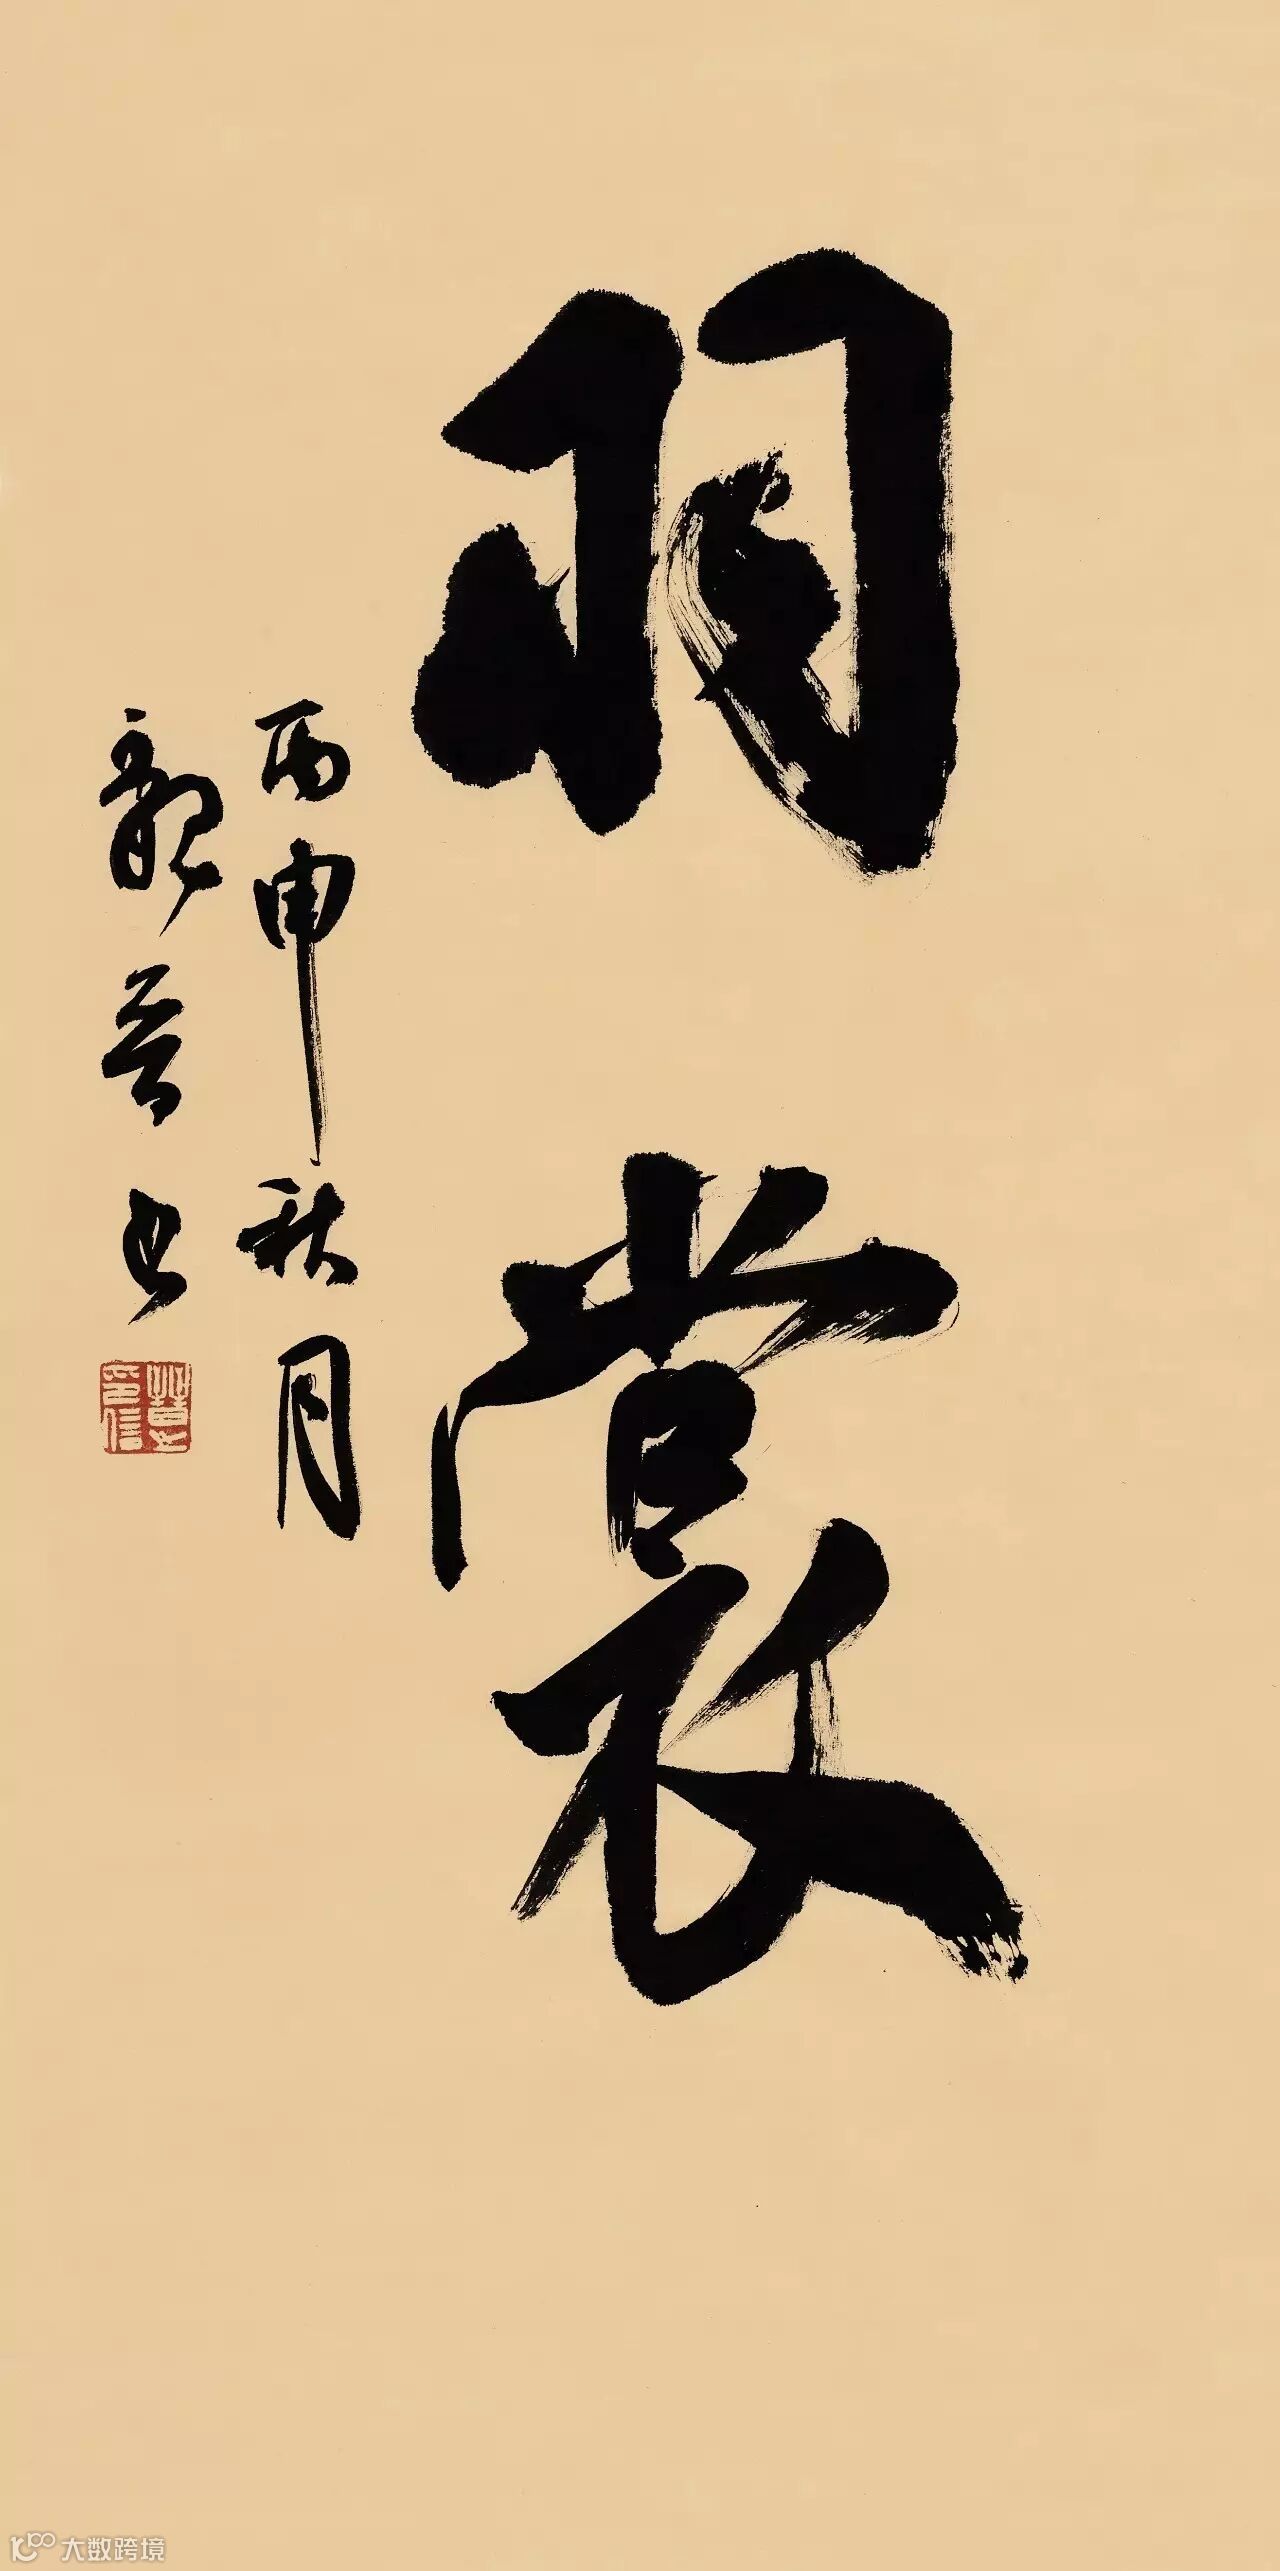 羽裳
丙申秋月
龍晉书
大数跨境